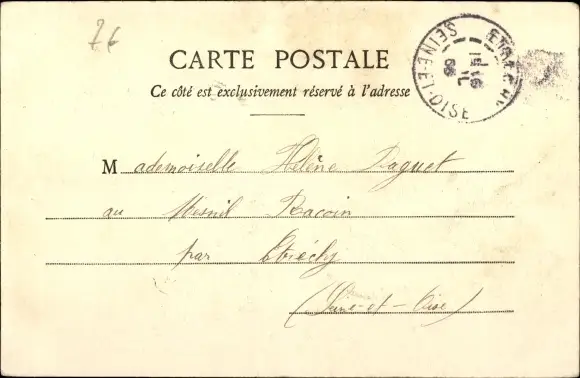 26
CARTE POSTALE
Ce côté est exclusivement réservé à l'adresse
SEINE-ET-OISE
Mademoiselle Hélène Paquet
au Mesnil Racoin
par Etréchy
(Seine-et-Oise)